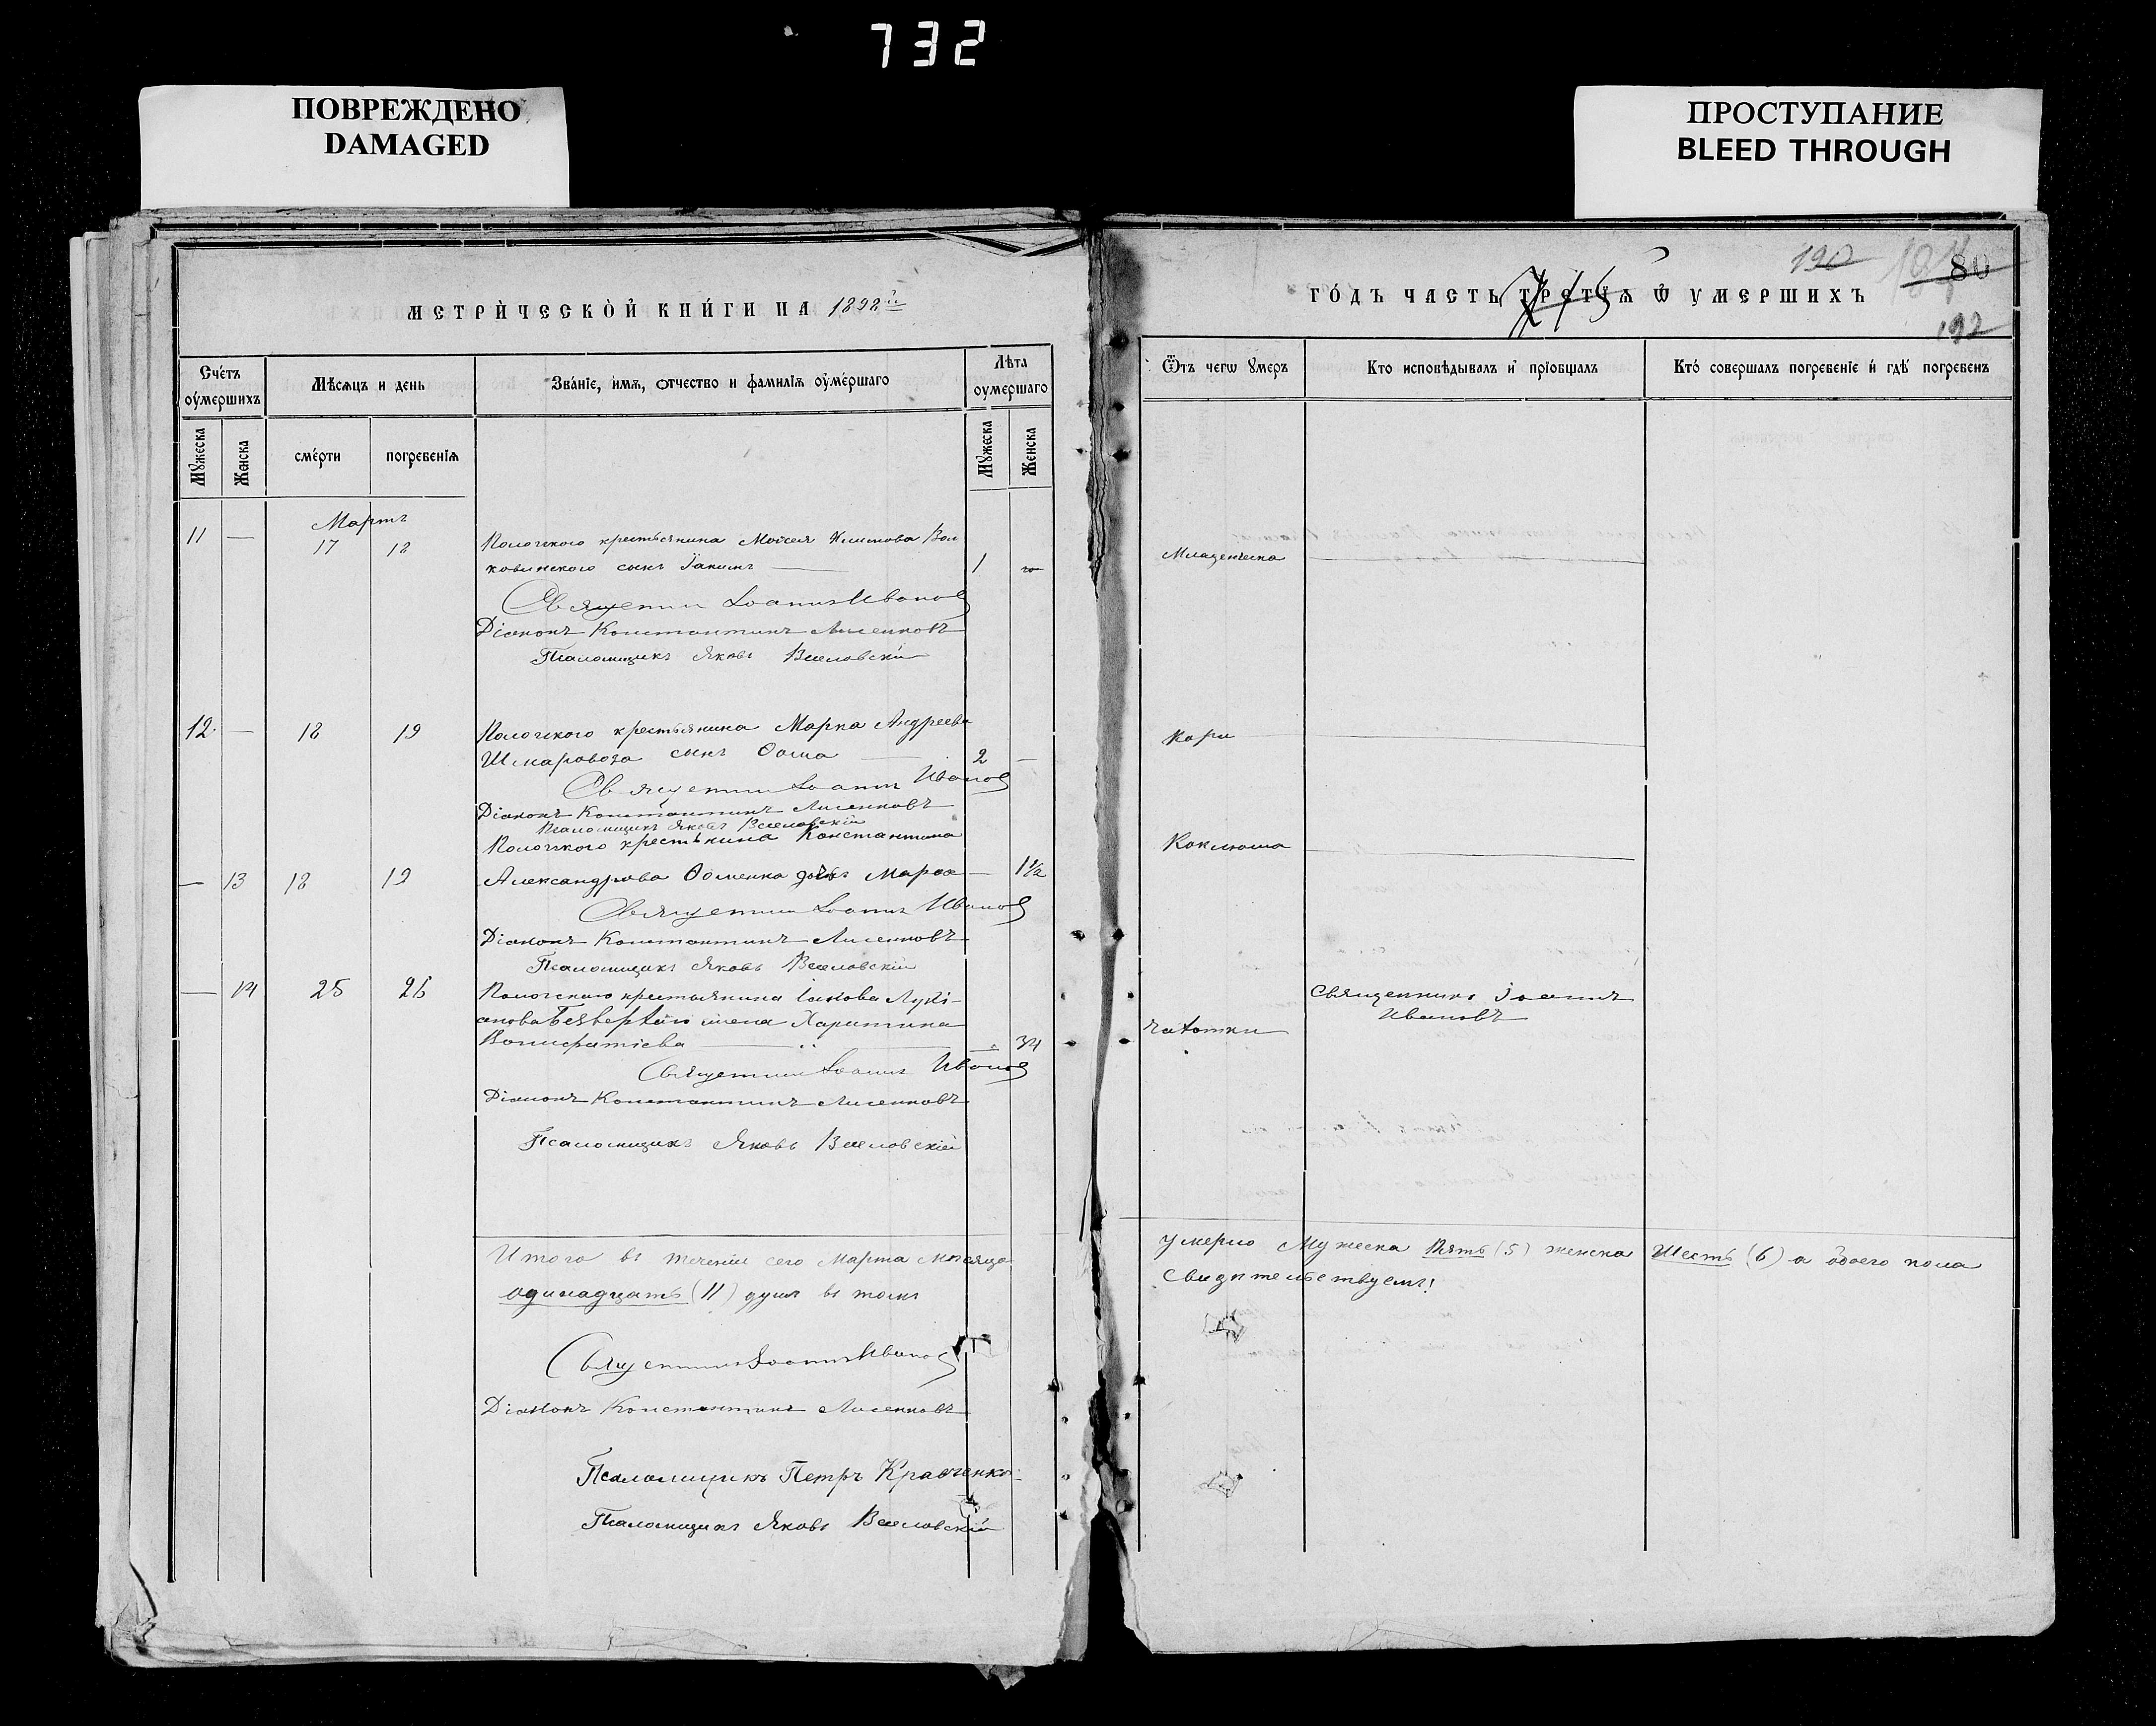 732
ПОВРЕЖДЕНО
DAMAGED
ПРОСТУПАНИЕ
BLEED THROUGH
МЕТРИЧЕСКОЙ КНИГИ НА 1898й
Счетъ оумершихъ
Мѣсяцъ и день
Званіе, имя, отчество и фамилія оумершаго
Лѣта оумершаго
Мужеска
Женска
смерти
погребенія
Мужеска
Женска
Мартъ
11 — 17 18
крестьянина Моисея Климова
сынъ Іакимъ — 1
Священник Іоаннъ Ивановъ
Діаконъ Константинъ Лисенковъ
Псаломщикъ Яковъ Веселовскій
12 — 18 19 крестьянина Марка Андреева
сынъ Ѳома — 2 —
Священник Іоаннъ Ивановъ
Діаконъ Константинъ Лисенковъ
Псаломщикъ Яковъ Веселовскій
крестьянина Константина
— 13 18 19 Александрова Ѳоменка дочь Марѳа — 1½
Священник Іоаннъ Ивановъ
Діаконъ Константинъ Лисенковъ
Псаломщикъ Яковъ Веселовскій
— 14 25 26 крестьянина Іакова Лукі-
анова жена Харитина
Вонифатіева — 34
Священник Іоаннъ Ивановъ
Діаконъ Константинъ Лисенковъ
Псаломщикъ Яковъ Веселовскій
Итого въ теченіи сего Марта мѣсяца
одинадцать (11) душъ въ томъ
Священник Іоаннъ Ивановъ
Діаконъ Константинъ Лисенковъ
Псаломщикъ Петръ Кравченко
Псаломщикъ Яковъ Веселовскій
190
80
192
ГОДЪ ЧАСТЬ ТРЕТІЯ Ѿ УМЕРШИХЪ
Ѿтъ чегѡ умеръ
Кто исповѣдывалъ и пріобщалъ
Кто совершалъ погребеніе и гдѣ погребенъ
Младенческа
Кори
Коклюша
Священникъ Іоаннъ
Ивановъ
чахотки
умерло Мужеска Пять (5) женска Шесть (6) а обоего пола
Свидѣтельствуемъ!